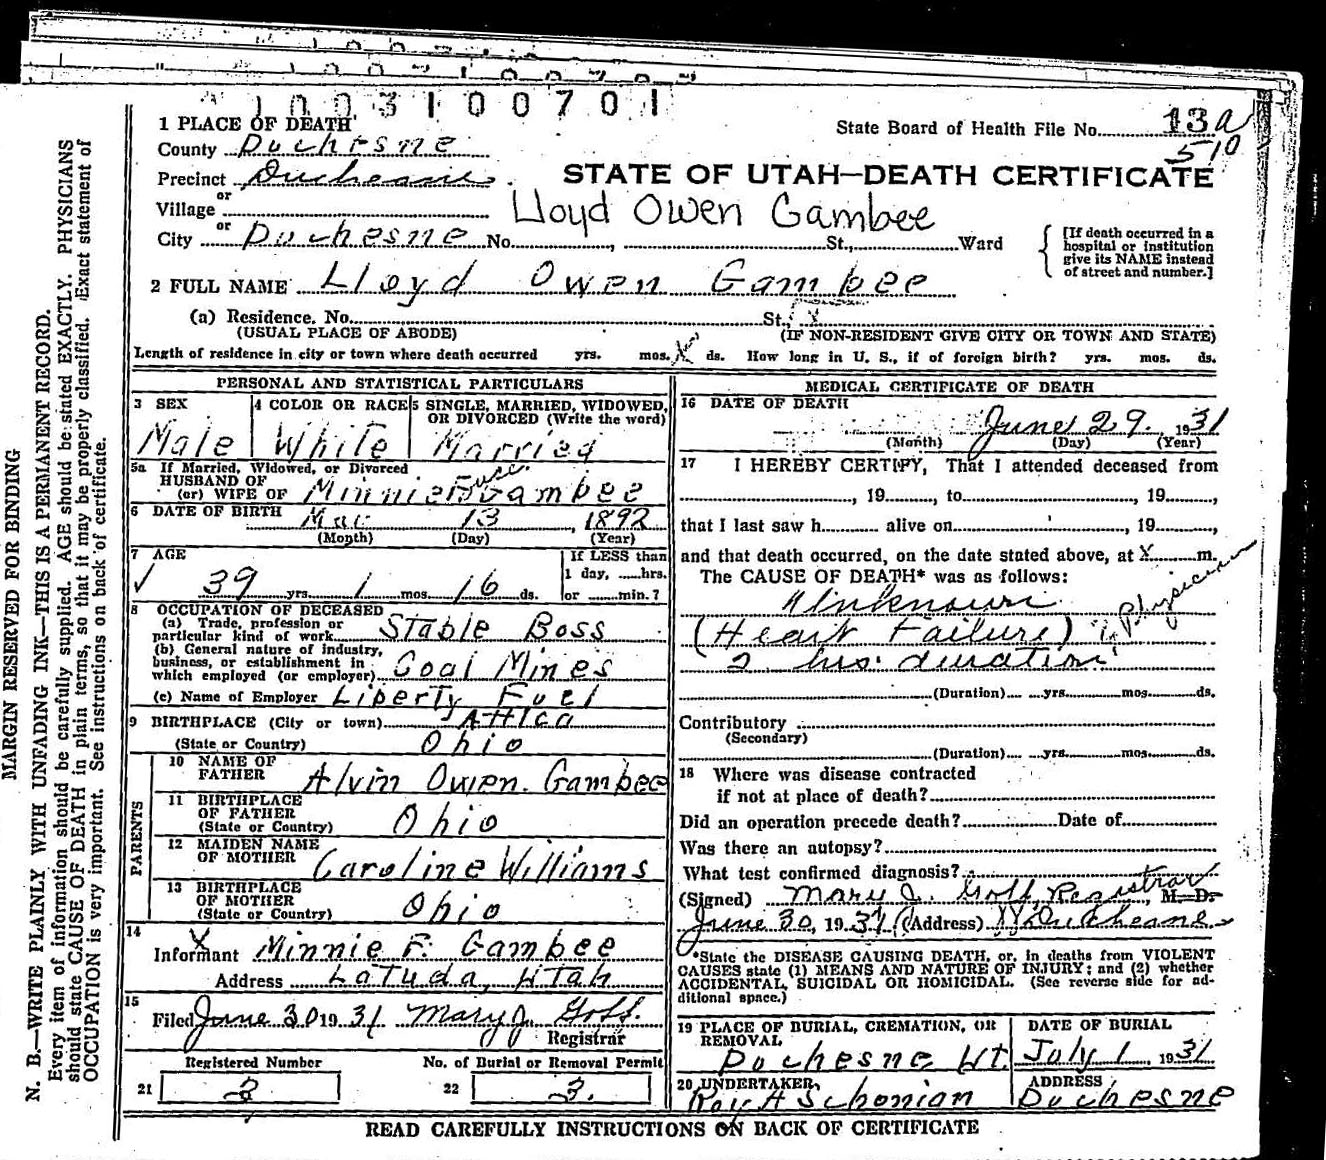 1003100701
1 PLACE OF DEATH
State Board of Health File No. 13a
510
County Duchesne
Precinct Duchesne
STATE OF UTAH—DEATH CERTIFICATE
or
Village
Lloyd Owen Gambee
or
City Duchesne No. , St., Ward
[If death occurred in a
hospital or institution
give its NAME instead
of street and number.]
2 FULL NAME Lloyd Owen Gambee
(a) Residence. No. St., X
(USUAL PLACE OF ABODE) (IF NON-RESIDENT GIVE CITY OR TOWN AND STATE)
Length of residence in city or town where death occurred yrs. mos. X ds. How long in U. S., if of foreign birth? yrs. mos. ds.
PERSONAL AND STATISTICAL PARTICULARS
3 SEX 4 COLOR OR RACE 5 SINGLE, MARRIED, WIDOWED,
OR DIVORCED (Write the word)
Male White Married
5a If Married, Widowed, or Divorced
HUSBAND OF
(or) WIFE OF Minnie Gambee
6 DATE OF BIRTH 13, 1892
(Month) (Day) (Year)
7 AGE If LESS than
1 day, hrs.
39 yrs. 1 mos. 16 ds. or min.?
8 OCCUPATION OF DECEASED
(a) Trade, profession or
particular kind of work Stable Boss
(b) General nature of industry,
business, or establishment in
which employed (or employer) Coal Mines
(c) Name of Employer Liberty Fuel
9 BIRTHPLACE (City or town) Attica
(State or Country) Ohio
PARENTS
10 NAME OF
FATHER Alvin Owen. Gambee
11 BIRTHPLACE
OF FATHER
(State or Country) Ohio
12 MAIDEN NAME
OF MOTHER Caroline Williams
13 BIRTHPLACE
OF MOTHER
(State or Country) Ohio
14
X
Informant Minnie F. Gambee
Address Latuda, Utah
15
Filed June 30 1931 Mary J. Goff.
Registrar
Registered Number No. of Burial or Removal Permit
21 3 22 3.
MEDICAL CERTIFICATE OF DEATH
16 DATE OF DEATH
June 29. 1931
(Month) (Day) (Year)
17 I HEREBY CERTIFY, That I attended deceased from
, 19 , to , 19 ,
that I last saw h alive on , 19 ,
and that death occurred, on the date stated above, at X m.
The CAUSE OF DEATH* was as follows:
Unknown
(Heart Failure) Physician
2 hrs. duration
(Duration) yrs. mos. ds.
Contributory
(Secondary)
(Duration) yrs. mos. ds.
18 Where was disease contracted
if not at place of death?
Did an operation precede death? Date of
Was there an autopsy?
What test confirmed diagnosis?
(Signed) Mary J. Goff, Registrar, M. D.
June 30, 1931 (Address) Duchesne
*State the DISEASE CAUSING DEATH, or, in deaths from VIOLENT
CAUSES state (1) MEANS AND NATURE OF INJURY; and (2) whether
ACCIDENTAL, SUICIDAL OR HOMICIDAL. (See reverse side for ad-
ditional space.)
19 PLACE OF BURIAL, CREMATION, OR
REMOVAL
Duchesne, Ut.
DATE OF BURIAL
July 1 1931
20 UNDERTAKER,
Roy H Schonian
ADDRESS
Duchesne
READ CAREFULLY INSTRUCTIONS ON BACK OF CERTIFICATE
MARGIN RESERVED FOR BINDING
N. B.—WRITE PLAINLY WITH UNFADING INK—THIS IS A PERMANENT RECORD.
Every item of information should be carefully supplied. AGE should be stated EXACTLY. PHYSICIANS
should state CAUSE OF DEATH in plain terms, so that it may be properly classified. Exact statement of
OCCUPATION is very important. See instructions on back of certificate.